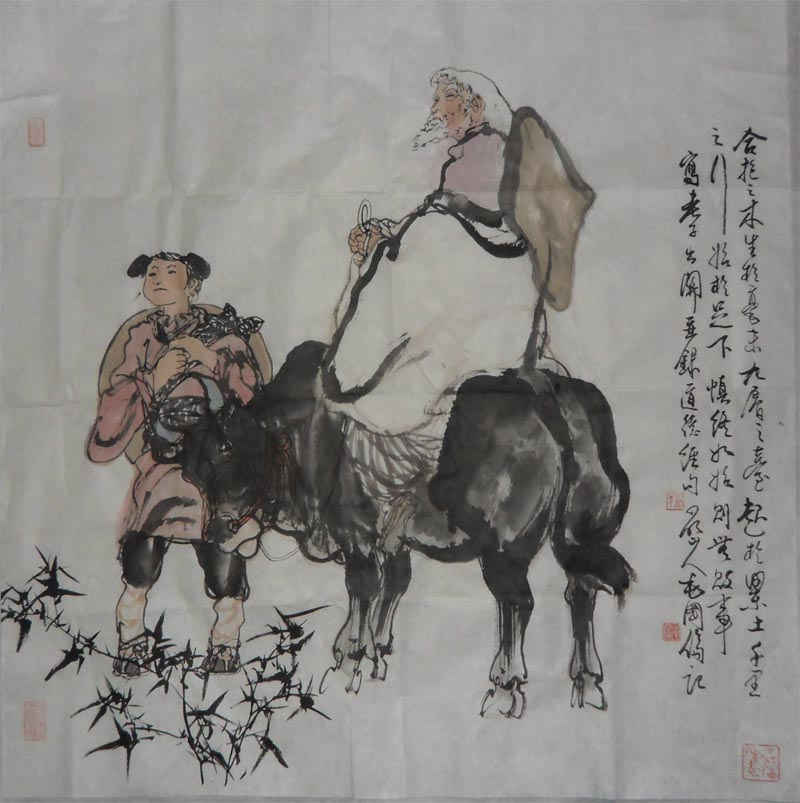 合抱之木生於毫末九層之臺起於累土千里
之行始於足下慎終如始則無敗事
寫老子出關並錄道德經句山人國記